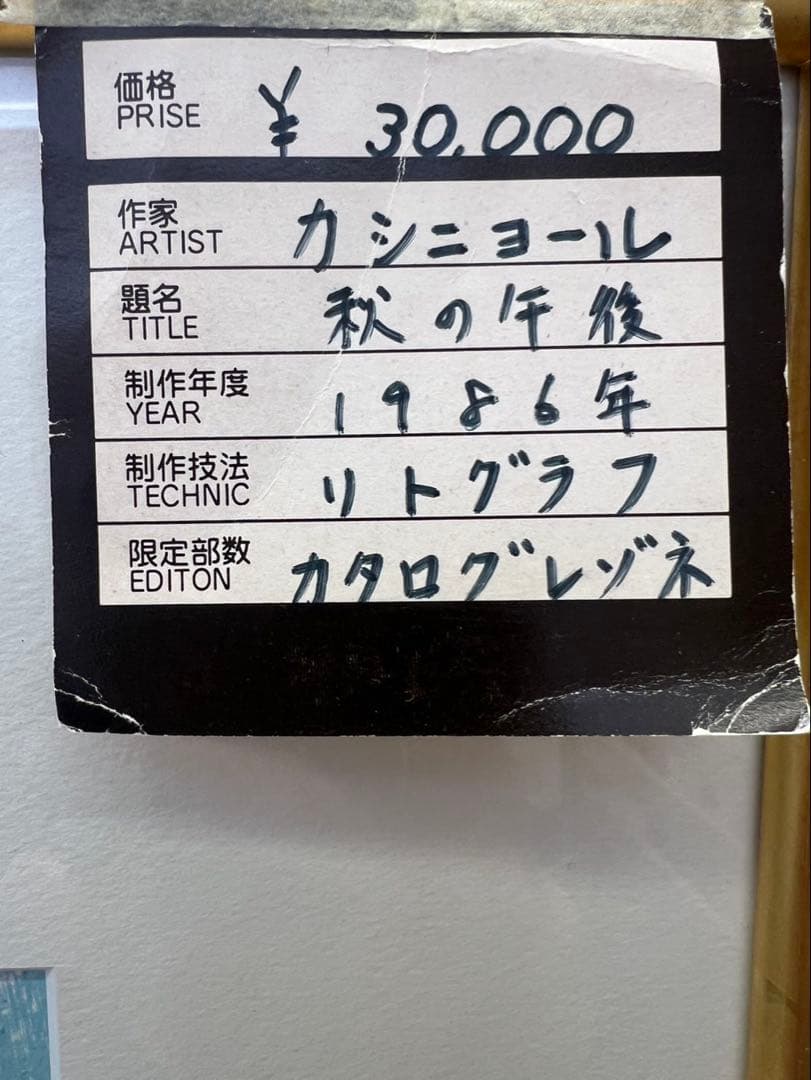 価格
PRISE
¥ 30.000
作家
ARTIST
カシニヨール
題名
TITLE
秋の午後
制作年度
YEAR
1986年
制作技法
TECHNIC
リトグラフ
限定部数
EDITON
カタログレゾネ